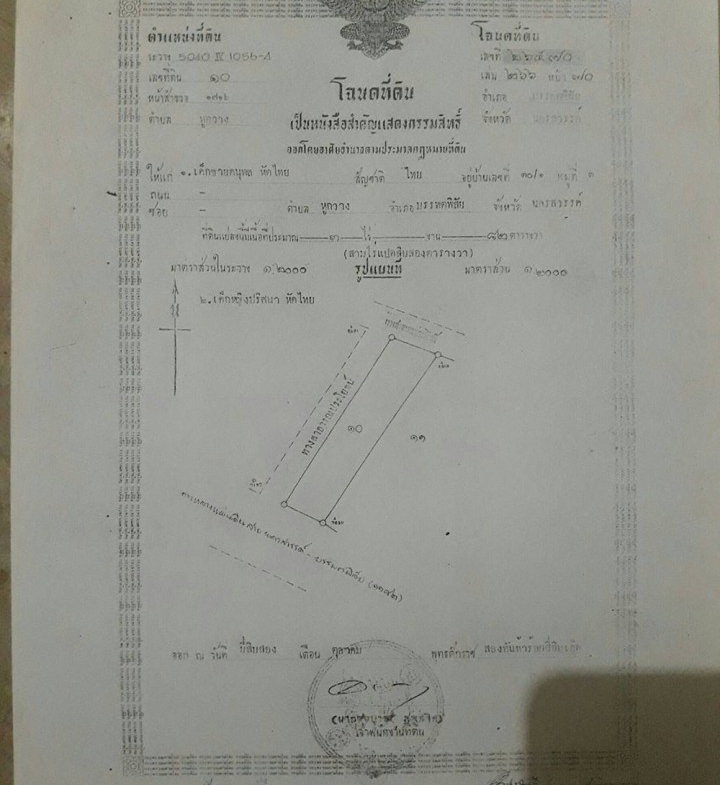 ตำแหน่งที่ดิน
ระวาง 5040 IV 1056-4
เลขที่ดิน ๑๐
หน้าสำรวจ ๑๗๑๖
ตำบล หูกวาง
โฉนดที่ดิน
เลขที่
เล่ม ๒๖๖ หน้า ๗๐
อำเภอ บรรพตพิสัย
จังหวัด นครสวรรค์
โฉนดที่ดิน
เป็นหนังสือสำคัญแสดงกรรมสิทธิ์
ออกโดยอาศัยอำนาจตามประมวลกฎหมายที่ดิน
ให้แก่ ๑. เด็กชายคนุพล หัดไทย สัญชาติ ไทย อยู่บ้านเลขที่ ๓๐/๑ หมู่ที่ ๑
ถนน -
ซอย - ตำบล หูกวาง อำเภอ บรรพตพิสัย จังหวัด นครสวรรค์
ที่ดินแปลงนี้มีเนื้อที่ประมาณ ๓ ไร่ งาน ๘๒ ตารางวา
(สามไร่แปดสิบสองตารางวา)
มาตราส่วนในระวาง ๑:๒๐๐๐ รูปแผนที่ มาตราส่วน ๑:๒๐๐๐
๒. เด็กหญิงปริศนา หัดไทย
ทางสาธารณประโยชน์
๑๐
๑๑
ทางหลวงแผ่นดิน สาย นครสวรรค์ - บรรพตพิสัย (๑๑๘๒)
ออก ณ วันที่ ยี่สิบสอง เดือน ตุลาคม พุทธศักราช
เจ้าพนักงานที่ดิน